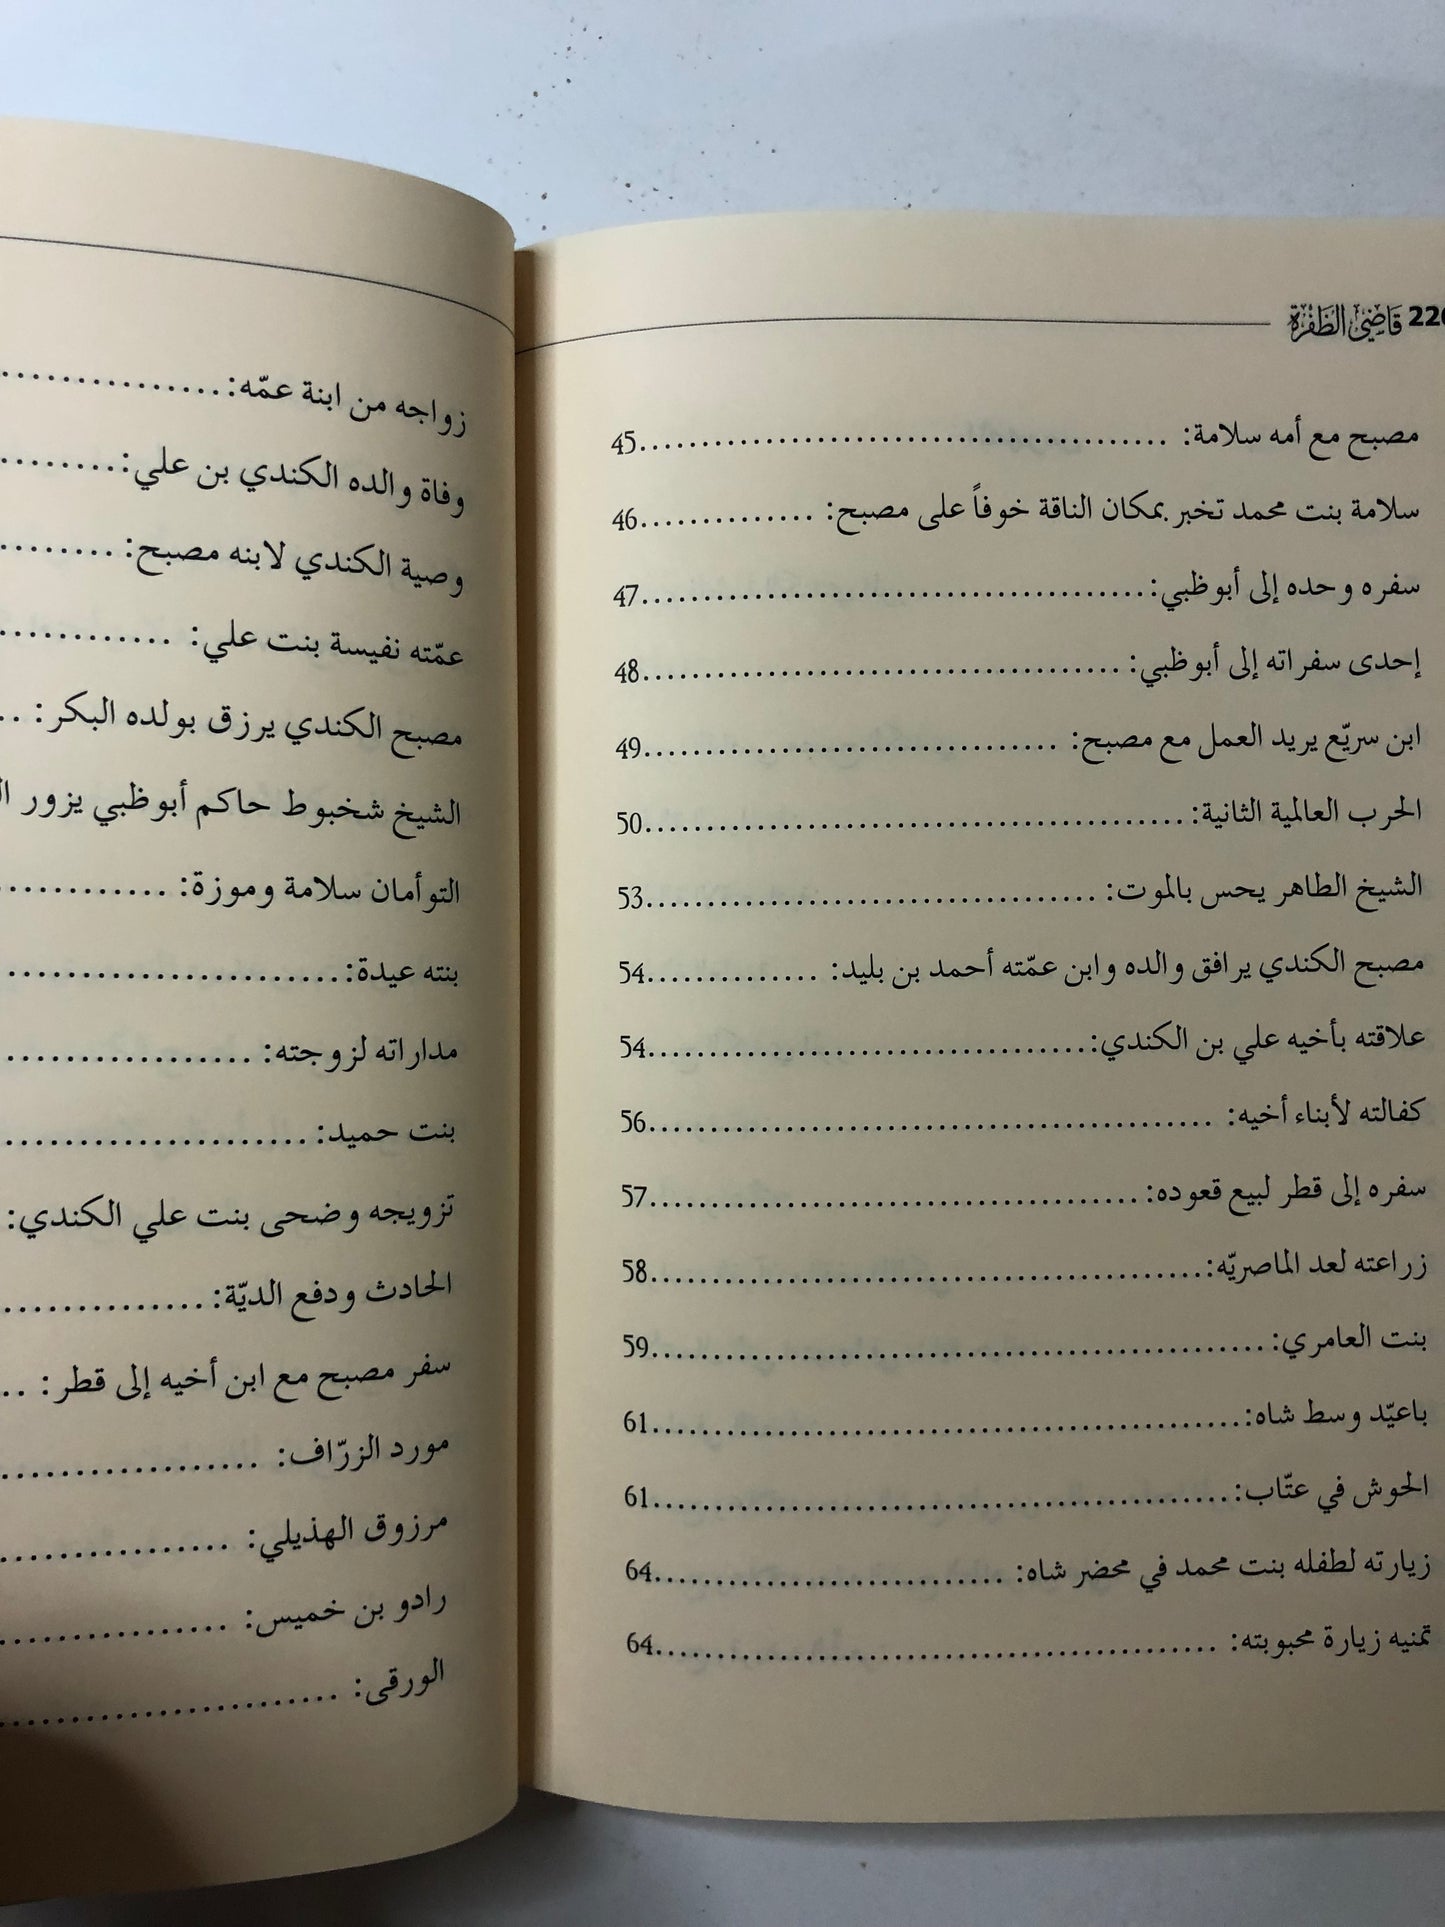 قاضي الظفرة
مصبح مع أمه سلامة: ............................................45
سلامة بنت محمد تخبر بمكان الناقة خوفاً على مصبح: ...............46
سفره وحده إلى أبوظبي:...........................................47
إحدى سفراته إلى أبوظبي:........................................48
ابن سريّع يريد العمل مع مصبح: ...................................49
الحرب العالمية الثانية:.............................................50
الشيخ الطاهر يحس بالموت: ......................................53
مصبح الكندي يرافق والده وابن عمّته أحمد بن بليد: ...............54
علاقته بأخيه علي بن الكندي:.....................................54
كفالته لأبناء أخيه: ...............................................56
سفره إلى قطر لبيع قعوده:.........................................57
زراعته لعد الماصريّه:..............................................58
بنت العامري:....................................................59
باعيّد وسط شاه:..................................................61
الحوش في عتّاب:.................................................61
زيارته لطفله بنت محمد في محضر شاه: ..............................64
تمنيه زيارة محبوبته: ...............................................64
زواجه من ابنة عمّه:................
وفاة والده الكندي بن علي:........
وصية الكندي لابنه مصبح: ........
عمّته نفيسة بنت علي: ............
مصبح الكندي يرزق بولده البكر: ..
الشيخ شخبوط حاكم أبوظبي يزور
التوأمان سلامة وموزة: ............
بنته عيدة:.......................
مداراته لزوجته: .................
بنت حميد:.....................
تزويجه وضحى بنت علي الكندي:
الحادث ودفع الديّة:..............
سفر مصبح مع ابن أخيه إلى قطر: ..
مورد الزرّاف: ..................
مرزوق الهذيلي: ................
رادو بن خميس: ................
الورقى: .......................